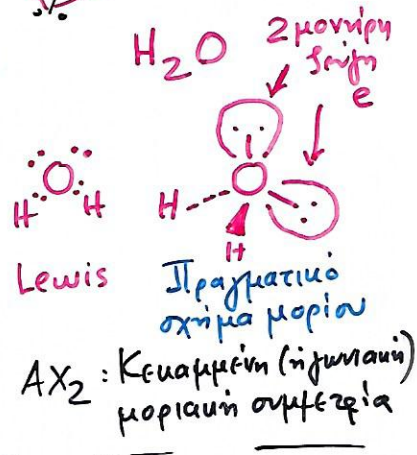 H₂O
2 μονήρη
ζεύγη
e
O
H H
Lewis
O
H
H
Πραγματικό
σχήμα μορίου
AX₂ : Κεκαμμένη (ή γωνιακή)
μοριακή συμμετρία